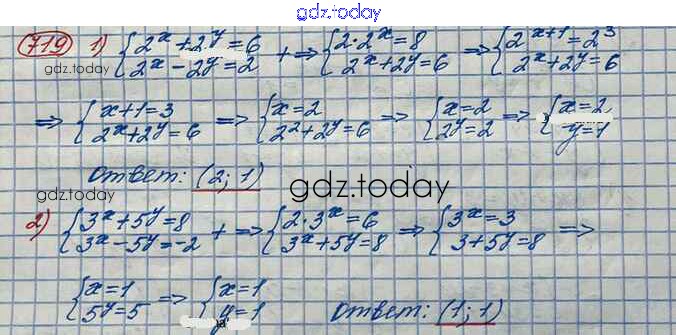 gdz.today
719 1) {2^x + 2^y = 6 {2^x - 2^y = 2 + => {2·2^x = 8 {2^x + 2^y = 6 => {2^(x+1) = 2^3 {2^x + 2^y = 6
gdz.today
=> {x + 1 = 3 {2^x + 2^y = 6 => {x = 2 {2^2 + 2^y = 6 => {x = 2 {2^y = 2 => {x = 2 {y = 1
Ответ: (2; 1)
gdz.today
gdz.today
2) {3^x + 5^y = 8 {3^x - 5^y = -2 + => {2·3^x = 6 {3^x + 5^y = 8 => {3^x = 3 {3 + 5^y = 8 =>
{x = 1 {5^y = 5 => {x = 1 {y = 1 Ответ: (1; 1)